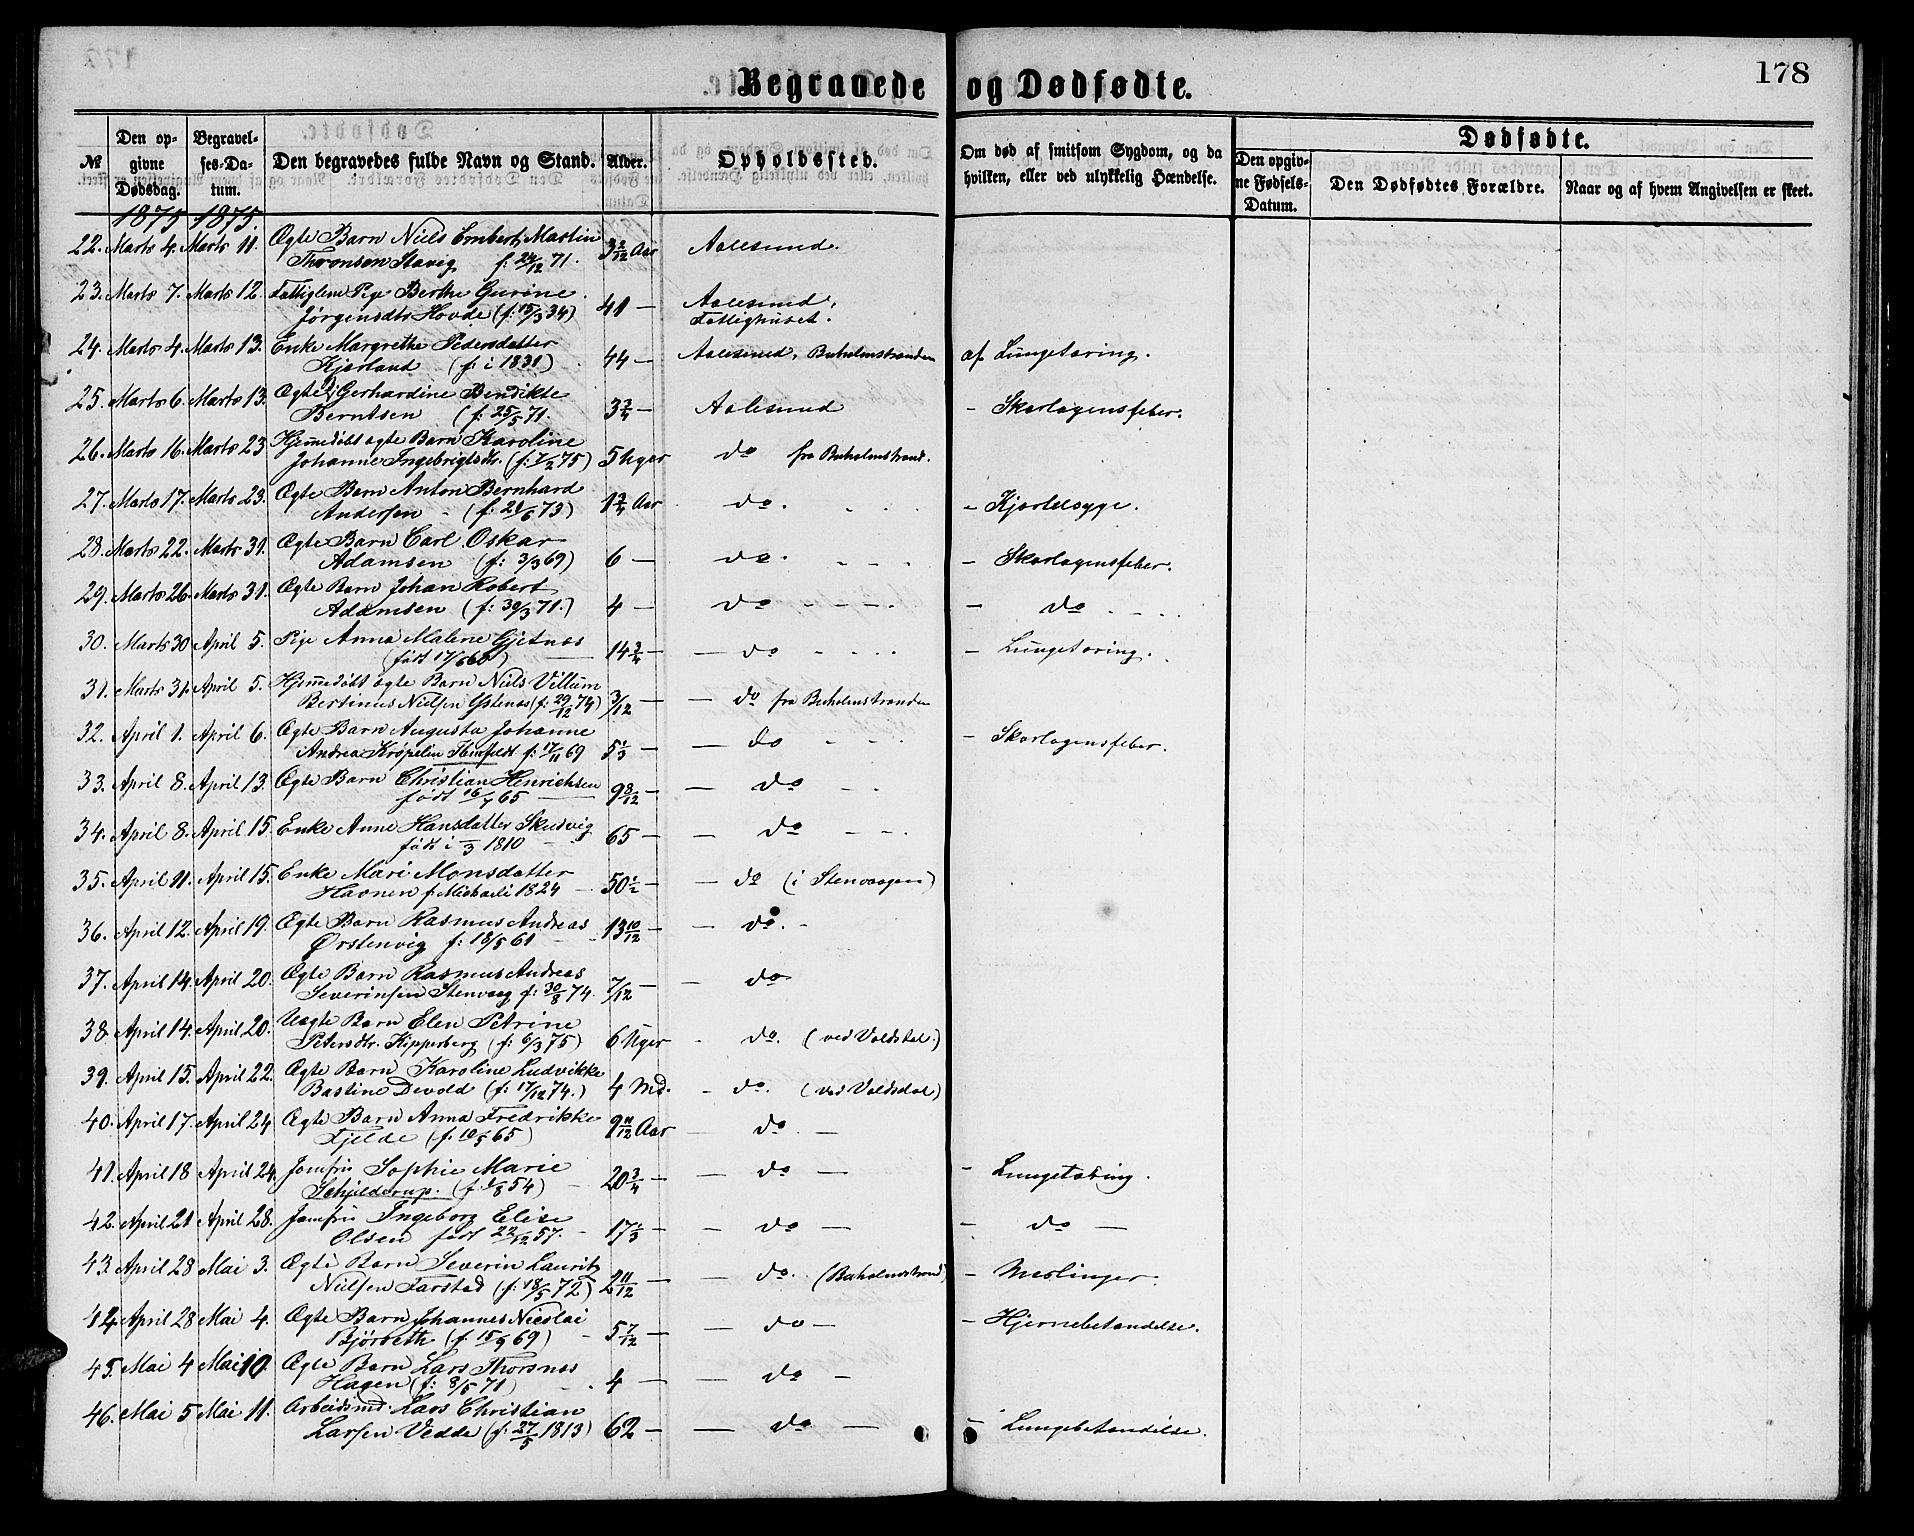 178
Begravede og Dødfødte.
№ Den opgivne Dødsdag. Begravelses-Datum. Den begravedes fulde Navn og Stand. Alder. Opholdssted. Om død af smitsom Sygdom, og da hvilken, eller ved ulykkelig Hændelse. Dødfødte. Den opgivne Fødsels-Datum. Den Dødfødtes Forældre. Naar og af hvem Angivelsen er skeet.
1875 1875.
22. Marts 4. Marts 11. Ægte Barn Niels Embert Martin 3 2/12 Aar Aalesund.
Thronsen Stavig f: 24/12 71.
23. Marts 7. Marts 12. Fattiglem Pige Berthe Gurine 41 — Aalesund,
Jørgensdtr Hovde (f: 15/3 34) Fattighuset.
24. Marts 4. Marts 13. Enke Margrethe Pedersdatter 44 — Aalesund, Buholmstranden af Lungetæring.
Kjerland (f: i 1831)
25. Marts 6. Marts 13. Ægte Gerhardine Bendikte 3 3/4 — Aalesund - Skarlagensfeber.
Berntsen (f: 25/5 71.
26. Marts 16. Marts 23 Hjemmedøbt ægte Barn Karoline 5 Uger do fra Buholmstrand.
Johanne Ingebrigtsdtr. (f: 7/2 75)
27. Marts 17. Marts 23. Ægte Barn Anton Bernhard 1 3/4 Aar do. - Kjertelsyge.
Andersen (f: 21/6 73)
28. Marts 22. Marts 31. Ægte Barn Carl Oskar 6 — do. - Skarlagensfeber.
Adamsen (f: 3/3 69)
29. Marts 26. Marts 31. Ægte Barn Johan Robert 4 — do - do
Adamsen (f: 30/3 71.)
30. Marts 30 April 5. Pige Anna Malene Gjetnæs 14 3/4 — do - Lungetæring.
(født 17/6 60)
31. Marts 31. April 5. Hjemmedøbt ægte Barn Niels Villum 3/12 — do fra Buholmstranden
Bertinus Nielsen Ystenæs (f: 29/12 74)
32. April 1. April 6. Ægte Barn Augusta Johanne 5 1/3 — do - Skarlagensfeber.
Andrea Krøpelin f: 17/11 69
33. April 8. April 13. Ægte Barn Christian Henrichsen 9 8/12 — do
født 16/7 65
34. April 8. April 15. Enke Anne Hansdatter Skudvig 65 — do
født i 3 1810
35. April 11. April 15. Enke Mari Monsdatter 50 1/2 — do (i Stenvaagen)
Havnen f. Michaeli 1824
36. April 12. April 19. Ægte Barn Rasmus Andreas 13 10/12 — do.
Ørstenvig f: 18/5 61
37. April 14. April 20. Ægte Barn Rasmus Andreas 7/12 — do
Severinsen Stenvaag f: 30/8 74.
38. April 14. April 20. Uægte Barn Elen Petrine 6 Uger - do. (ved Voldsdal.)
Petersdtr. Kipperberg (f: 6/3 75)
39. April 15. April 22. Ægte Barn Karoline Ludvikke 4 Md. - do. (ved Voldsdal)
Bastine Devold (f: 17/12 74.)
40. April 17. April 24 Ægte Barn Anna Fredrikke 9 11/12 Aar do.
Fjelde (f: 10/5 65)
41. April 18 April 24. Jomfru Sophie Marie 20 3/4 — do - Lungetæring.
Schjelderup. (f. 1/8 54)
42. April 21 April 28. Jomfru Ingeborg Elise 17 1/3 — do - do
Olsen født 22/12 57.
43. April 28 Mai 3. Ægte Barn Severin Laurits 2 11/12 — do. (Buholmstrand) - Meslinger.
Nielsen Farstad (f: 18/5 72)
44 April 28 Mai 4. Ægte Barn Johannes Nicolai 5 7/12 — do - Hjernebetændelse.
Bjørseth (f. 15/9 69)
45. Mai 4 Mai 10. Ægte Barn Lars Thorsnæs 4 — do
Hagen (f: 8/5 71)
46. Mai 5 Mai 11. Arbeidsmd. Lars Christian 62 — do - Lungebetændelse.
Larsen Vedde (f: 27/5 1813)